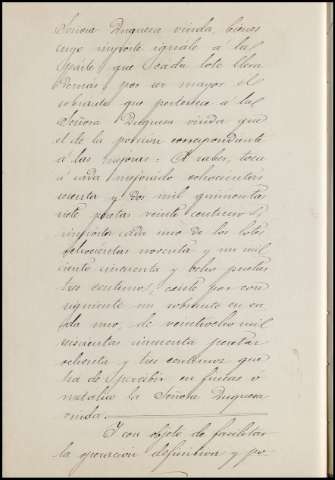 Señora Duquesa viuda, bienes
cuyo importe iguale a la
parte que a cada lote
por ser mayor el
sobrante que pertenece a la
Señora Duquesa viuda que
el de la porcion correspondiente
á las mejoras: A saber, toca
á cada mejorado ochocientas
mil quinientas
pesetas veinte centimos é
importa cada uno de los lotes
ochocientas noventa y un mil
ciento cincuenta y ocho pesetas
tres centimos, existe por con
siguiente un sobrante en ca
da uno, de veintiocho mil
seiscientas cincuenta pesetas
ochenta y tres centimos que
ha de percibir en fincas ó
metalico la Señora Duquesa
viuda.
Y con objeto de facilitar
la operacion definitiva y po-